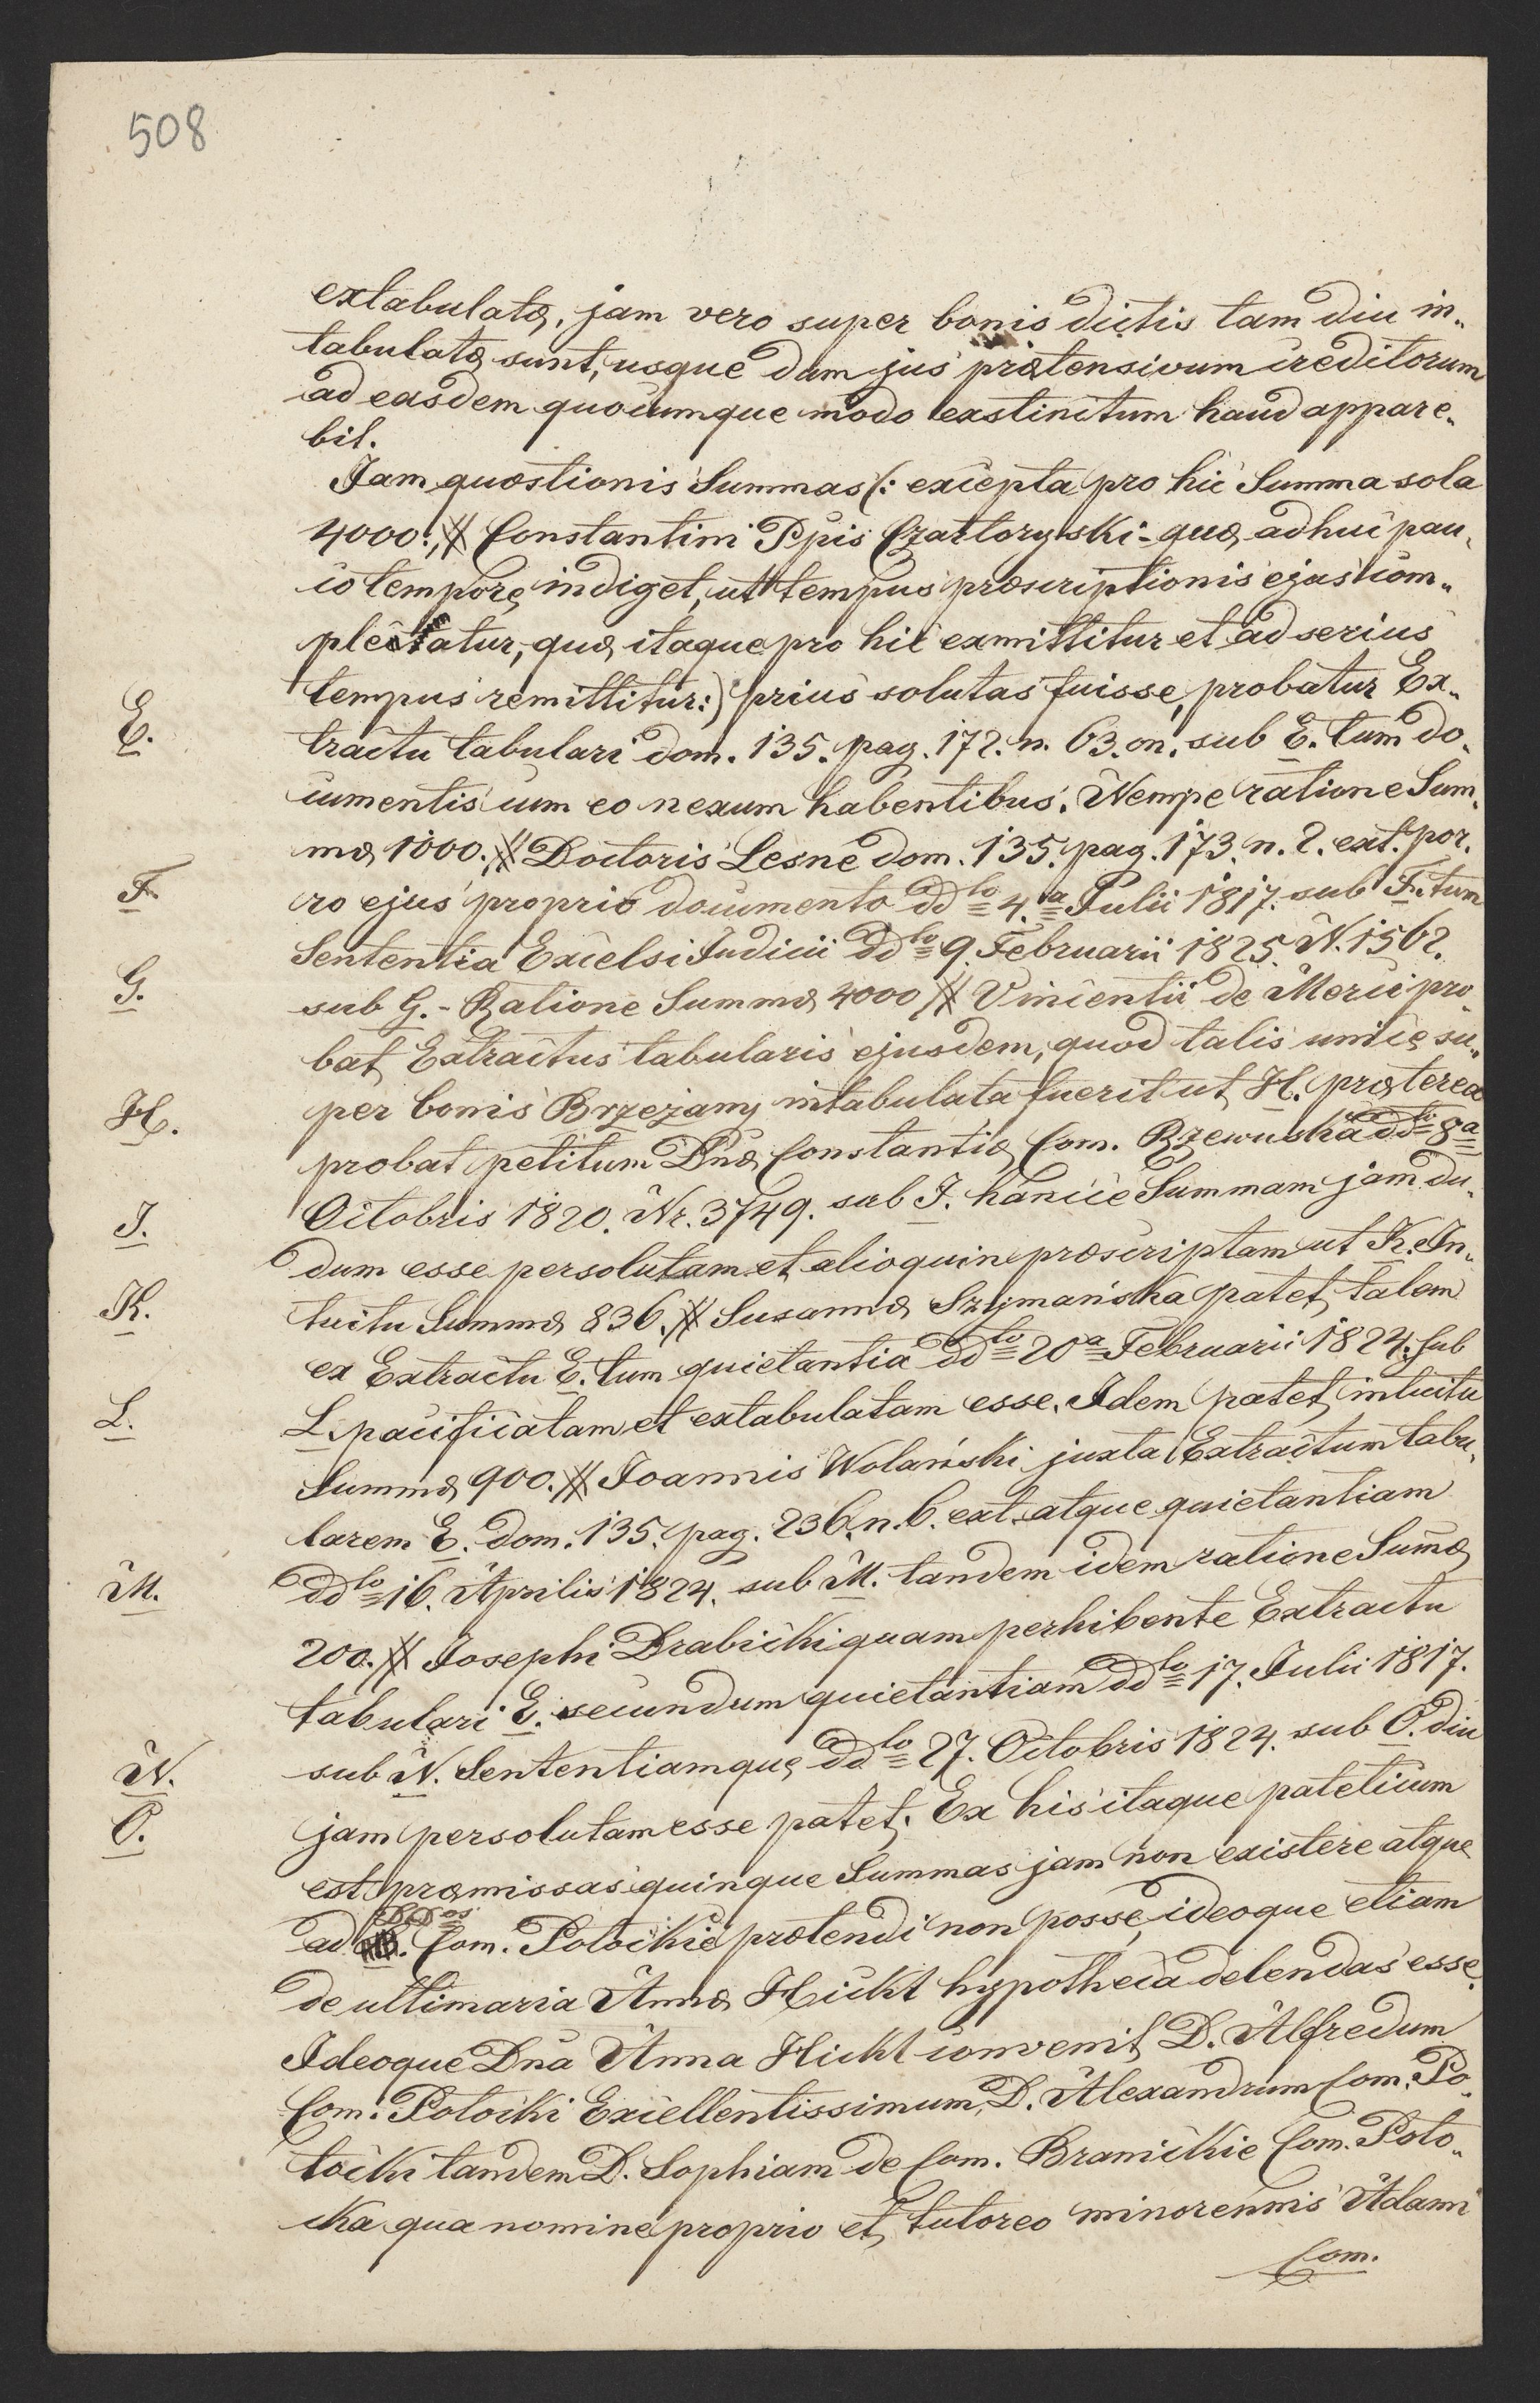 508
extabulatæ, jam vero super bonis dictis tam diu in„
tabulatæ sunt, usque dum jus prætensivum creditorum
ad easdem quocumque modo exstinctum haud appare„
bit.
Jam quæstionis Summas (: excepta pro hic Summa sola
4000. # Constantini Ppis Czartoryski - quæ adhuc pau„
co tempore indiget, ut tempus præscriptionis ejus com„
pleatur, quæ itaque pro hic exmittitur et ad serius
tempus remittitur:) prius solutas fuisse, probatur Ex„
E.
tractu tabulari dom. 135. pag. 172. n. 63. on. sub E. tum do„
cumentis cum eo nexum habentibus. Nempe ratione Sum„
mæ 1000. # Doctoris Lesne dom. 135. pag. 173. n. 2. ext. por„
F.
ro ejus proprio documento ddto 4ta Julii 1817. sub F. tum
Sententia Excelsi Judicii ddto 9. Februarii 1825. N. 1562.
G.
sub G. - Ratione Summæ 4000 # Vincentii de Meric pro
bat Extractus tabularis ejusdem, quod talis unice su„
H.
per bonis Brzezany intabulata fuerit ut H. præterea
probat petitum Dnæ Constantiæ Com. Rzewuska ddto 8a
I.
Octobris 1820. Nr. 3749. sub I. hancce Summam jam du„
dum esse persolutam et alioquin præscriptam ut K. In„
K.
tuitu Summæ 836. # Susannæ Szymańska patet, talem
ex Extractu E. tum quietantia ddto 20a Februarii 1824. sub
L.
L. pacificatam et extabulatam esse. Idem patet intuitu
Summæ 900. # Joannis Wolański juxta Extractum tabu„
larem E. dom. 135. pag. 236. n. 6. ext. atque quietantiam
M.
ddto 16. Aprilis 1824. sub M. tandem idem ratione Sumæ
200. # Josephi Drabicki quam perhibente Extractu
tabulari E. secundum quietantiam ddto 17. Julii 1817.
N.
sub N. Sententiamque ddto 27. Octobris 1824. sub O. diu
O.
jam persolutam esse patet. Ex his itaque pateticum
est præmissas quinque Summas jam non existere atque
DDos
ad Com. Potockie prætendi non posse, ideoque etiam
de ultimaria Annæ Hickt hypotheca delendas esse.
Ideoque Dna Anna Hickt convenit D. Alfredum
Com. Potocki Excellentissimum, D. Alexandrum Com. Po„
tocki tandem D. Sophiam de Com. Branickie Com. Poto„
cka qua nomine proprio et tutoreo minorennis Adami
Com.